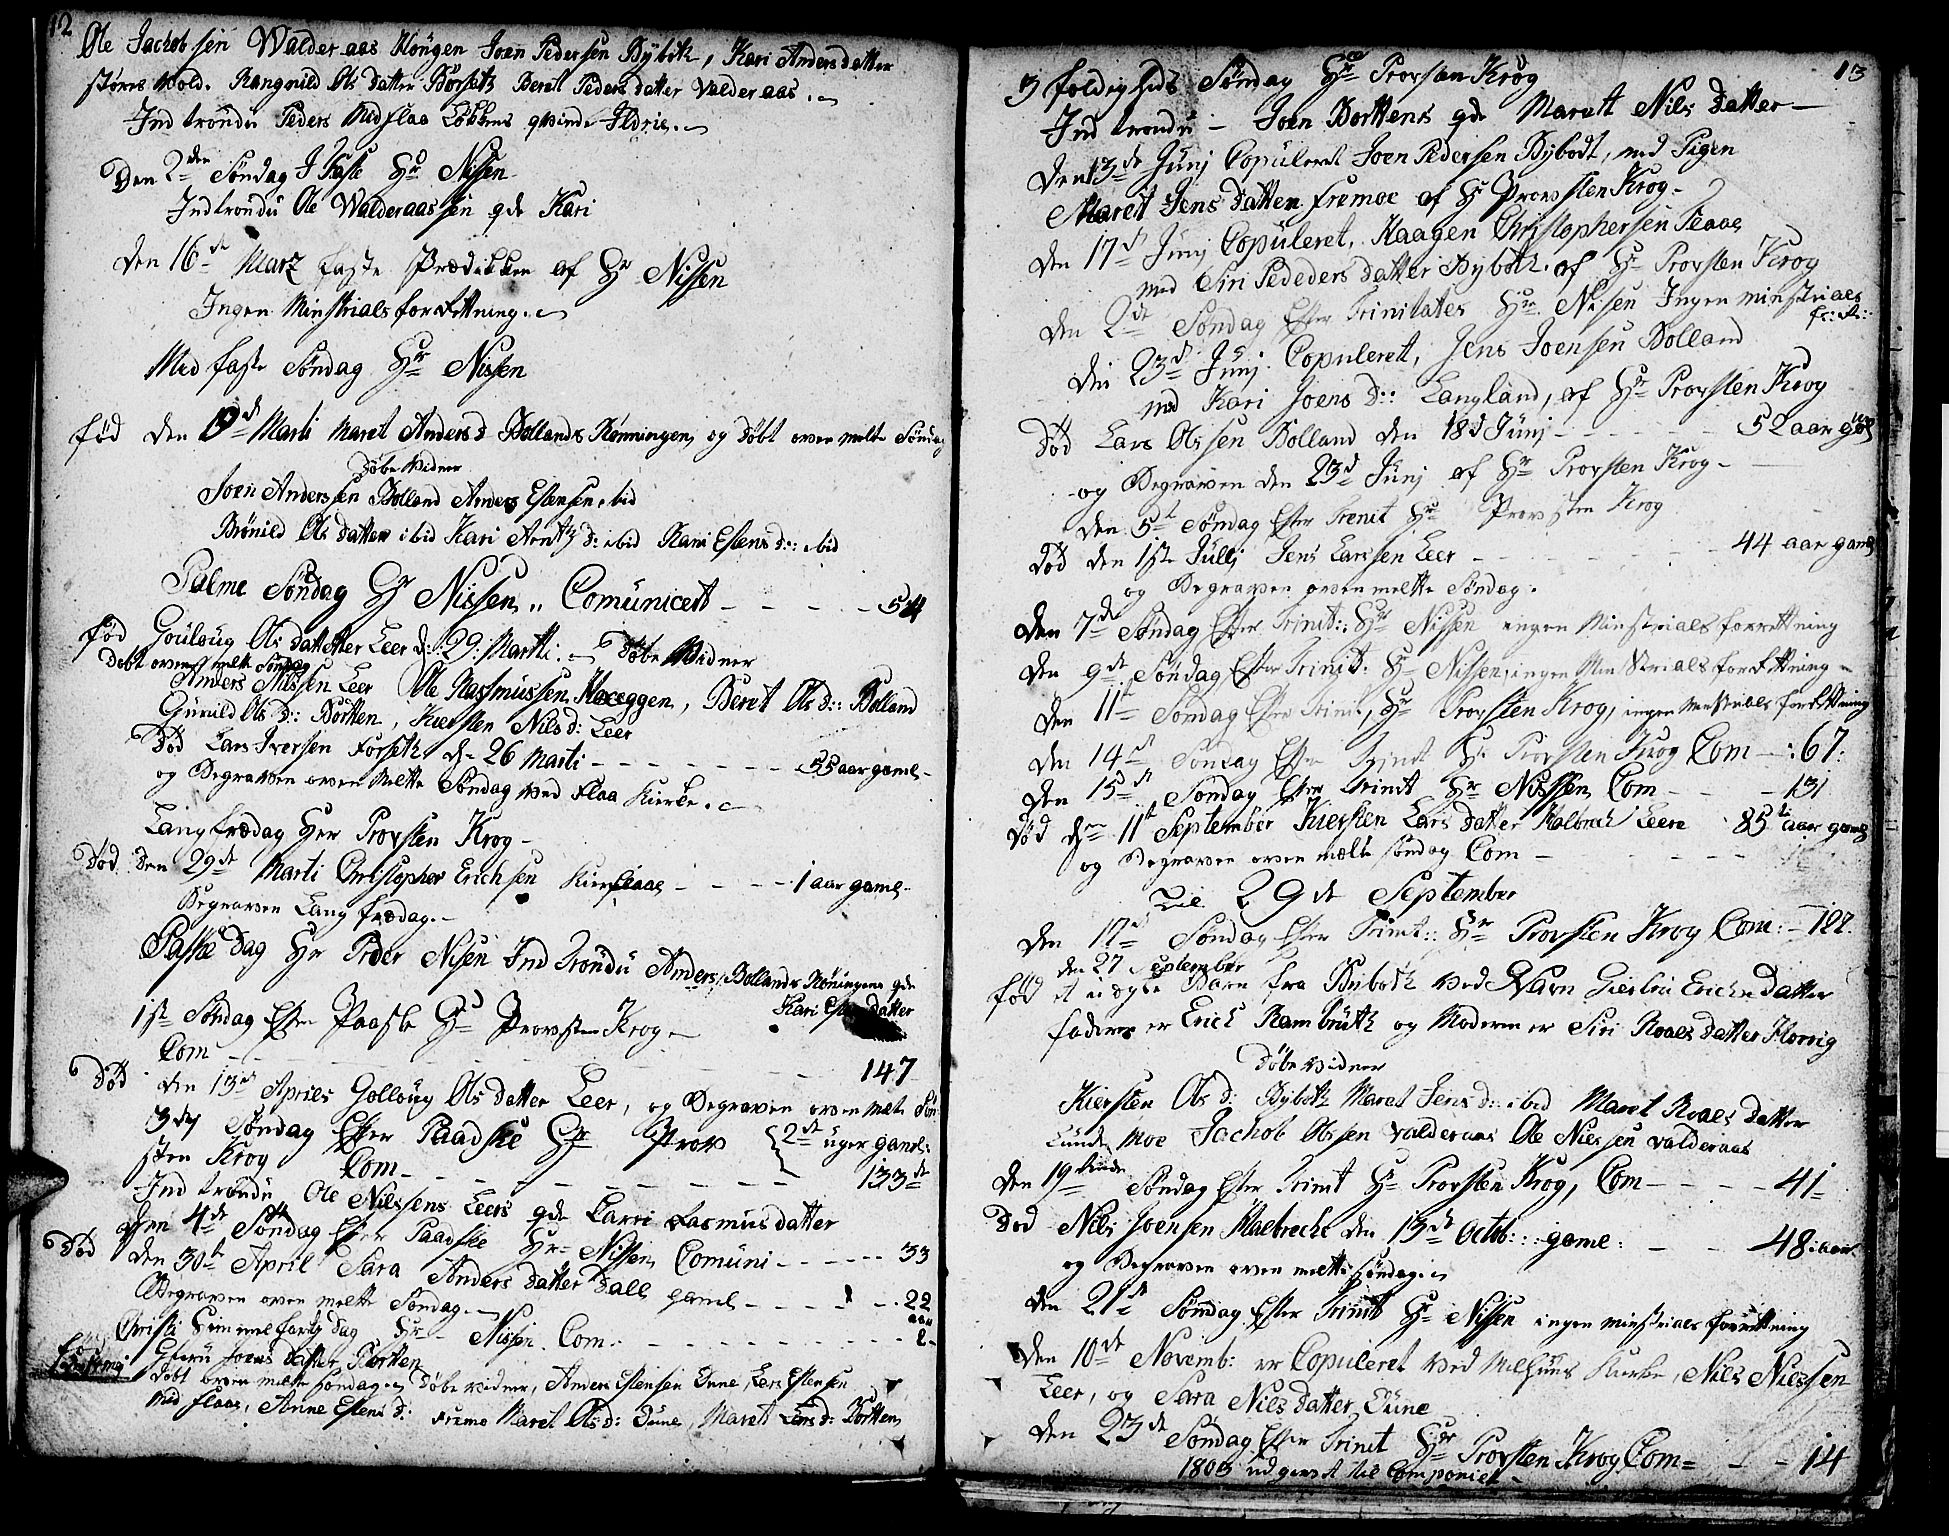 12
Ole Jachobsen Walderaas Kongen Joen Pedersen Bybotk, Kari Andersdatter
størens vold. Rangnild Ols datter Børseth Beret Peders datter Valderaas.
Indtrondu Peders Medflaa Løkkens qvinde Ildrie.
Den 2den Søndag I Faste Hr Nissen
Indtrondu Ole Walderaas sen qde Kari
den 16de Marz faste Prædikken af Hr Nissen
Ingen Minstrialsforrettning.
Med faste Søndag Hr Nissen
født den Marti Maret Anders d Bollands Rønningen, og døbt oven melte Søndag
døbe Vidner
Joen Anderssen Bolland Anders Estensen ibid
Brønild Ols datter ibid Kari Arntz d: ibid Kari Estens d:: ibid
Palme Søndag Hr Nissen,, Comunicert - - - - 54
fød Gouloug Ols dattetter Leer d: 29: Martti. døbe Vidner
døbt oven melte Søndag
Anders Nilssen Leer Ole Rasmussen Haceggen, Beret Ols d:: Bolland
Gunild Ols d:: Bortten, Kiersten Nils d: Leer
Død Lars Iversen Forseth d- 26 Marti - - - - - - 55 aar gaml-
og Begraven oven melte Søndag ved Flaa Kierke.
Langfredag Her Provsten Krog-
Død den 29de Marti Christopher Erichsen - - - - 1 aar gaml-
Begraven Lang fredag.-
Paske Dag Hr Peder Nisen Ind Trondu Anders Bollands Røningens qde
Kari Estens datter
1ste Søndag Efter Paaske Hr Provsten Krog-
Com - - - - - - 147
Død den 13de Apriles Golloug Ols datter Leer, og Begraven oven melte Søn:
3de Søndag Efter Paadske Hr Prov { 2de uger gaml:
sten Krog Com - - - - - - 133
Indtrondu Ole Nilssens Leers qde Karri Rasmusdatter
Den 4de Søndag Efter Paadske Hr- Nissen Comuni - - - - - 33
Død den 30te April Sara Anders datter Dall gaml - - - - - 22
Begraven oven melte Søndag.- aar
Christi Himmelfarts dag Hr - Nissen. Com: - - - - - - 2-
fød Joens datter Bortten
døbt oven melte Søndag døbe vidner, Anders Estensen Dune, Lars Estensen
Med flaas, Anne Estens d: fremo Maret Ols d: Dune, Maret Lars d: Bortten
13
3 foldigheds Søndag Hr Provsten Krog
Indtrondu - Joen Borttens qde Marett Nils datter -
den 13de Junj Copuleret Joen Pedersen Bybodt, med Pigen
Maret Jens datter fremoe af Hr Provsten Krog-
den 17de Junj Copuleret, Haagen Christophersen Flaae
med Siri Pededers datter Bybotk. af Hr Provsten Krog
den 2de Søndag Efter Trinitates Hr Nissen Ingen minstriaels
fr: t::
den 23de Junj. Copuleret, Jens Joensen Bolland
med Kari Joens d:: Langland, af Hr Provsten Krog
Død Lars Olssen Bolland den 18d Junj - - - - 52 aar gl
og Begraven den 23d Junj af Hr Provsten Krog-
den 5te Søndag Efter Trenit Hr Provsten Krog
Død den 1ste Julij Jens Larssen Leer - - - - - 44 aar gaml
og Begraven oven melte Søndag.
den 7de Søndag Efter Trinit:: Hr Nissen ingen Minstrialsforrettning
den 9de Søndag Efter Trinit: Hr Nissen, ingen Minstrialsforrettning-
den 11te Søndag Efter Trinit, Hr Provsten Krog, ingen minstriaels forrettning
den 14de Søndag Efter Trinit Hr Provsten Krog Com - :67:
den 15de Søndag Efter Trinit Hr Nissen Com - - - 131
Død den 11te September Kiersten Lars datter Kalbrach Leere 85 aar gaml
og Begraven oven melte Søndag Com - - - - -
29de September
den 17de Søndag Efter Trinit:: Hr Provsten Krog Com: -
den 27 September
fød et uægte Barn fra Bybotk ved Navn Giertru Erichs datter
faderen er Erich Rambrutk og Moderen er Siri Roaels datter Horrig
døbe vidner
Kiersten Ols d: Bybotk Maret Jens d: ibid Maret Roaels datter
Lunde moe Jachob Olssen Valderaas Ole Nielssen Valderaas
den 19tende Søndag Efter Trinit Hr Provsten Krog, Com - - - - 41-
Død Nils Joensen Kalbrecht den 13de Octob:: gaml: - - 48: aar
og Begraven oven melte Søndag.
den 21de Sønndag Efter Trinit Hr Nissen ingen minstriaes forrettning
den 10de Novemb: er Copuleret ved Melhuus Kierke, Nils Nielssen
Leer, og Sara Nils datter Dune
den 23de Søndag Efter Trinit Hr Provsten Krog Com= - - 14
1803 udgivet til Componiet -